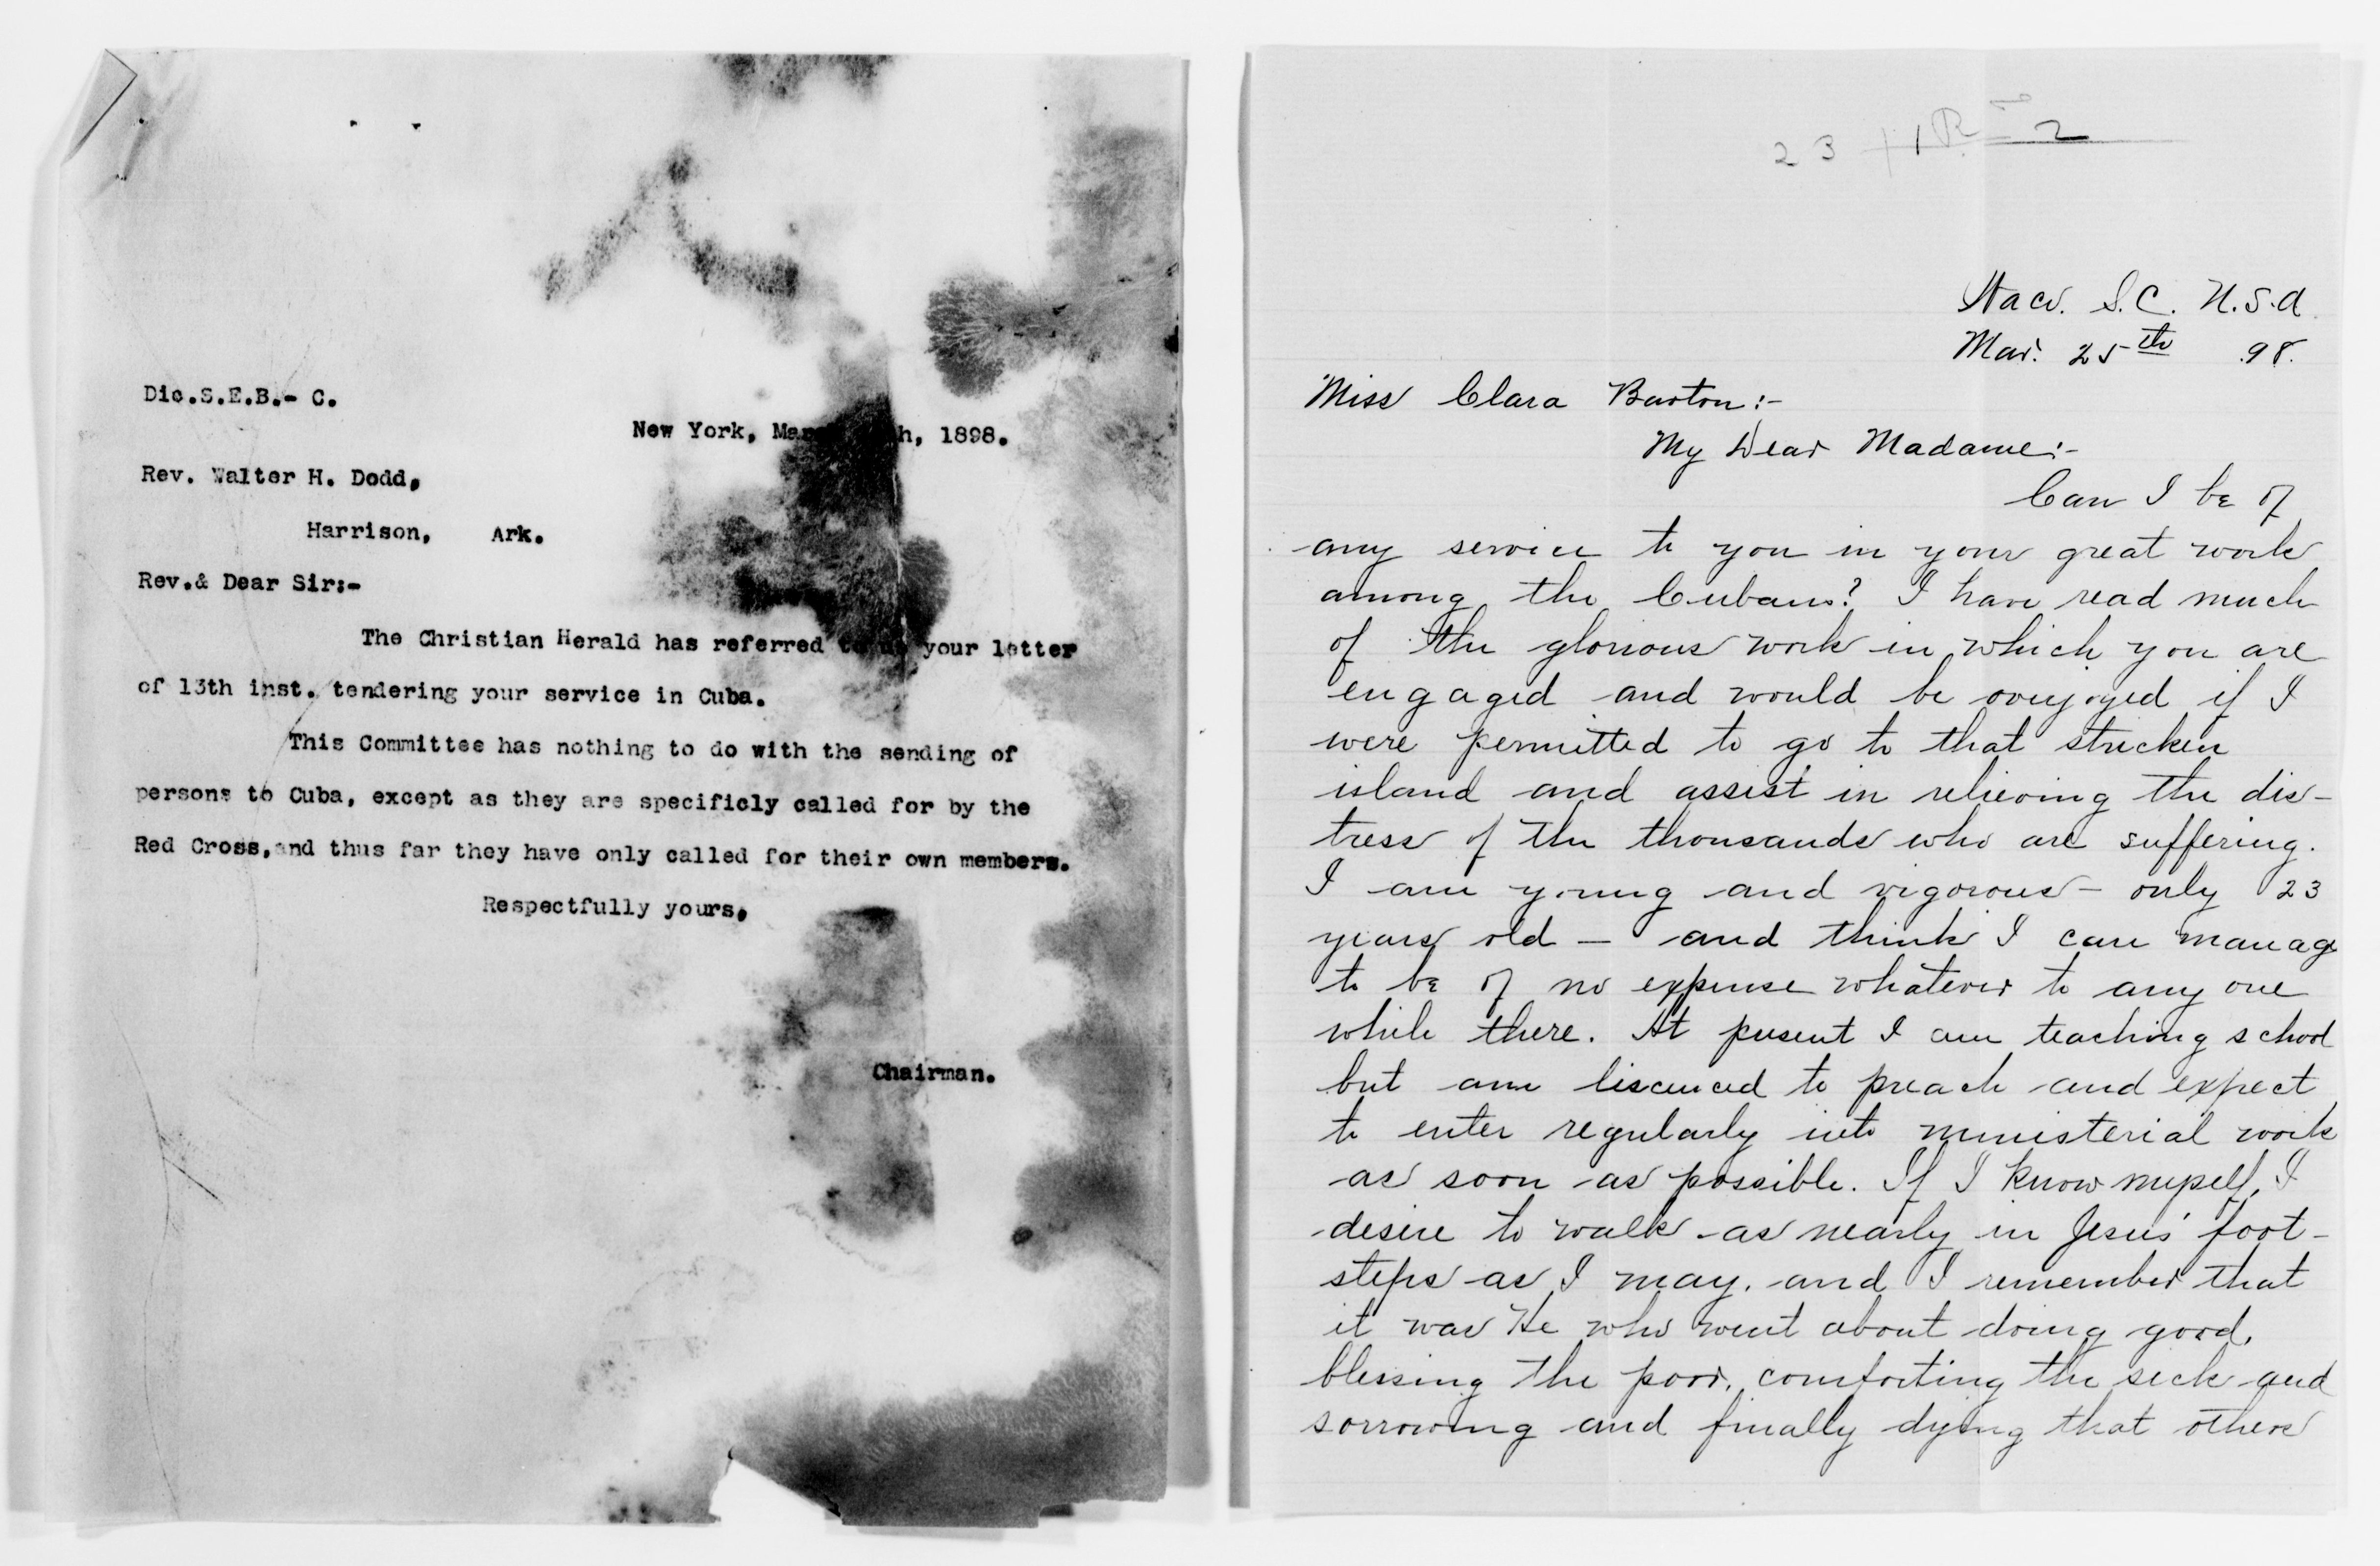 Dic.S.E.B.- C.
New York, March h, 1898.
Rev. Walter H. Dodd,
Harrison, Ark.
Rev.& Dear Sir:-
The Christian Herald has referred to us your letter
of 13th inst. tendering your service in Cuba.
This Committee has nothing to do with the sending of
persons to Cuba, except as they are specificly called for by the
Red Cross,and thus far they have only called for their own members.
Respectfully yours,
Chairman.
23
2
S.C. U.S.A.
Mar. 25th 98.
Miss Clara Barton:-
My Dear Madame:-
Can I be of
any service to you in your great work
among the Cubans? I have read much
of the glorious work in which you are
engaged and would be overjoyed if I
were permitted to go to that stricken
island and assist in relieving the dis-
tress of the thousands who are suffering.
I am young and vigorous - only 23
years old - and think I can manage
to be of no expense whatever to any one
while there. At present I am teaching school
but am liscenced to preach and expect
to enter regularly into ministerial work
as soon as possible. If I know myself, I
desire to walk as nearly in Jesus' foot-
steps as I may, and I remember that
it was He who went about doing good,
blessing the poor, comforting the sick and
sorrowing and finally dying that others